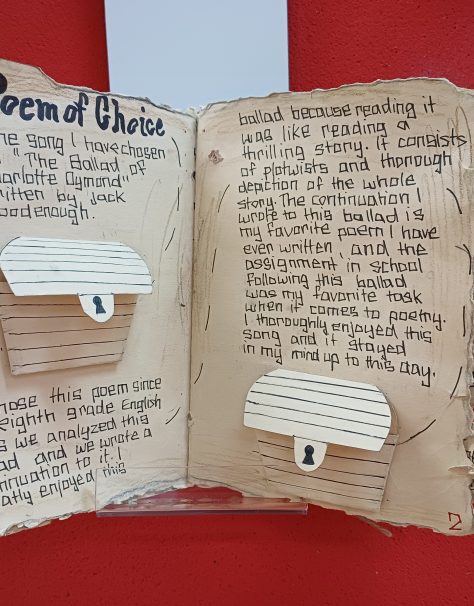 Poem of Choice
he song I have chosen
"The Ballad of
arlotte Dymond"
ritten by Jack
oodenough.
hose this poem since
Eighth grade English
s we analyzed this
ad and we wrote a
ntinuation to it. I
atly enjoyed this
ballad because reading it
was like reading a
thrilling story. It consists
of plotwists and thorough
depiction of the whole
story. The continuation I
wrote to this ballad is
my favorite poem I have
ever written, and the
assignment in school
following this ballad
was my favorite task
when it comes to poetry.
I thoroughly enjoyed this
song and it stayed
in my mind up to this day.
2